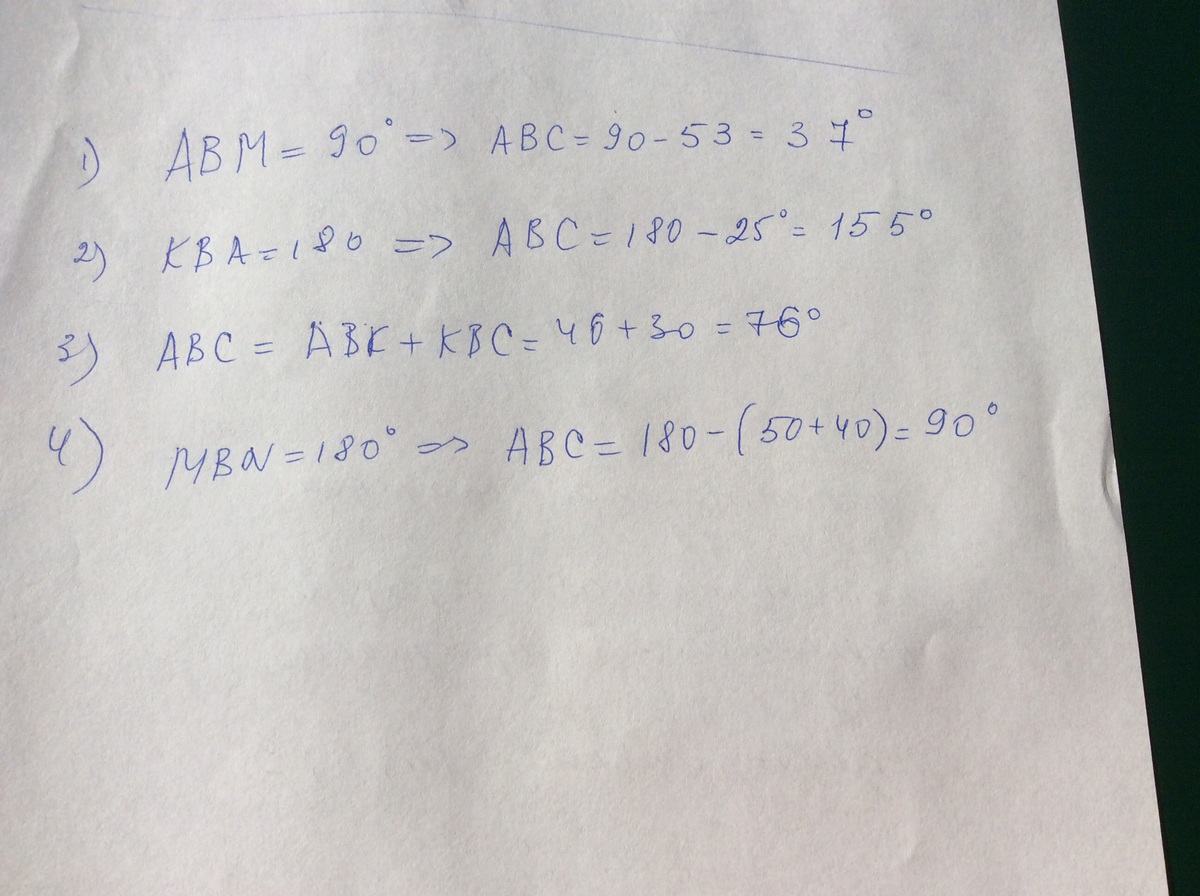 1) ABM = 90° => ABC = 90 - 53 = 37°
2) KBA = 180 => ABC = 180 - 25° = 155°
3) ABC = ABK + KBC = 46 + 30 = 76°
4) MBN = 180° => ABC = 180 - (50 + 40) = 90°